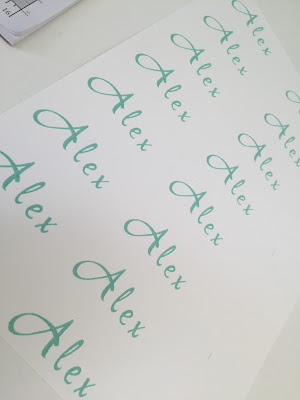 Alex
Alex
Alex
Alex
Alex
Alex
Alex
Alex
Alex
Alex
Alex
Alex
Alex
Alex